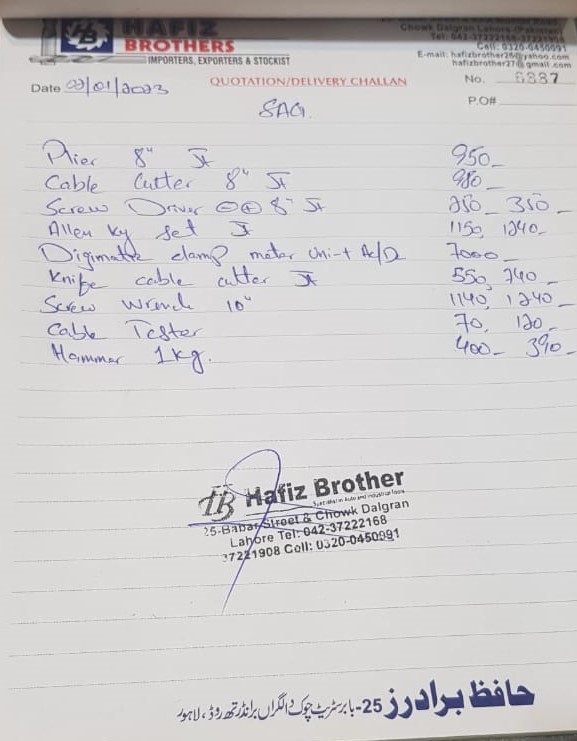 HB
HAFIZ
BROTHERS
IMPORTERS, EXPORTERS & STOCKIST
Chowk Dalgran Lahore (Pakistan)
Tel: 042-37222168-37221908
Cell: 0320-0450991
E-mail: hafizbrother25@yahoo.com
hafizbrother27@gmail.com
Date 02/01/2023
QUOTATION/DELIVERY CHALLAN
No. 6887
P.O#
SAG.
Plier 8" 950
Cable Cutter 8" 980
Screw Driver ⊖⊕ 8" 250 350
Allen Ky Set 1150, 1240
clamp meter Uni-t Ac/D 7000
Knife cable cutter 550, 740
Screw Wrench 10" 1140, 1240
Cable Tester 70, 120
Hammer 1kg. 400 390
HB Hafiz Brother
25-Babar Street & Chowk Dalgran
Lahore Tel: 042-37222168
37221908 Cell: 0320-0450991
حافظ برادرز 25-بابر سٹریٹ چوک دالگراں برانڈرتھ روڈ، لاہور